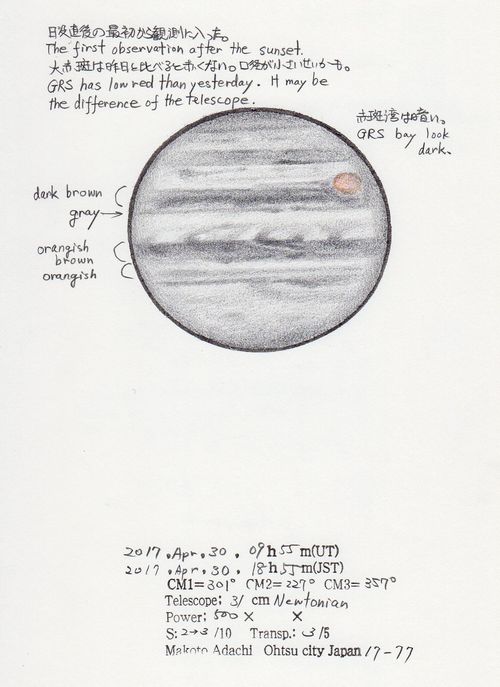 日没直後の最初から観測に入った。
The first observation after the sunset.
大赤斑は昨日と比べると赤くない。口径が小さいせいかも。
GRS has low red than yesterday. It may be
the difference of the telescope.
赤斑湾は暗い。
GRS bay look
dark.
dark brown
gray
orangish
brown
orangish
2017. Apr. 30. 09h 55m(UT)
2017. Apr. 30. 18h 55m(JST)
CM1=301° CM2=227° CM3=357°
Telescope: 31 cm Newtonian
Power: 500× ×
S: 2→3 /10 Transp.: 3/5
Makoto Adachi Ohtsu city Japan 17-77